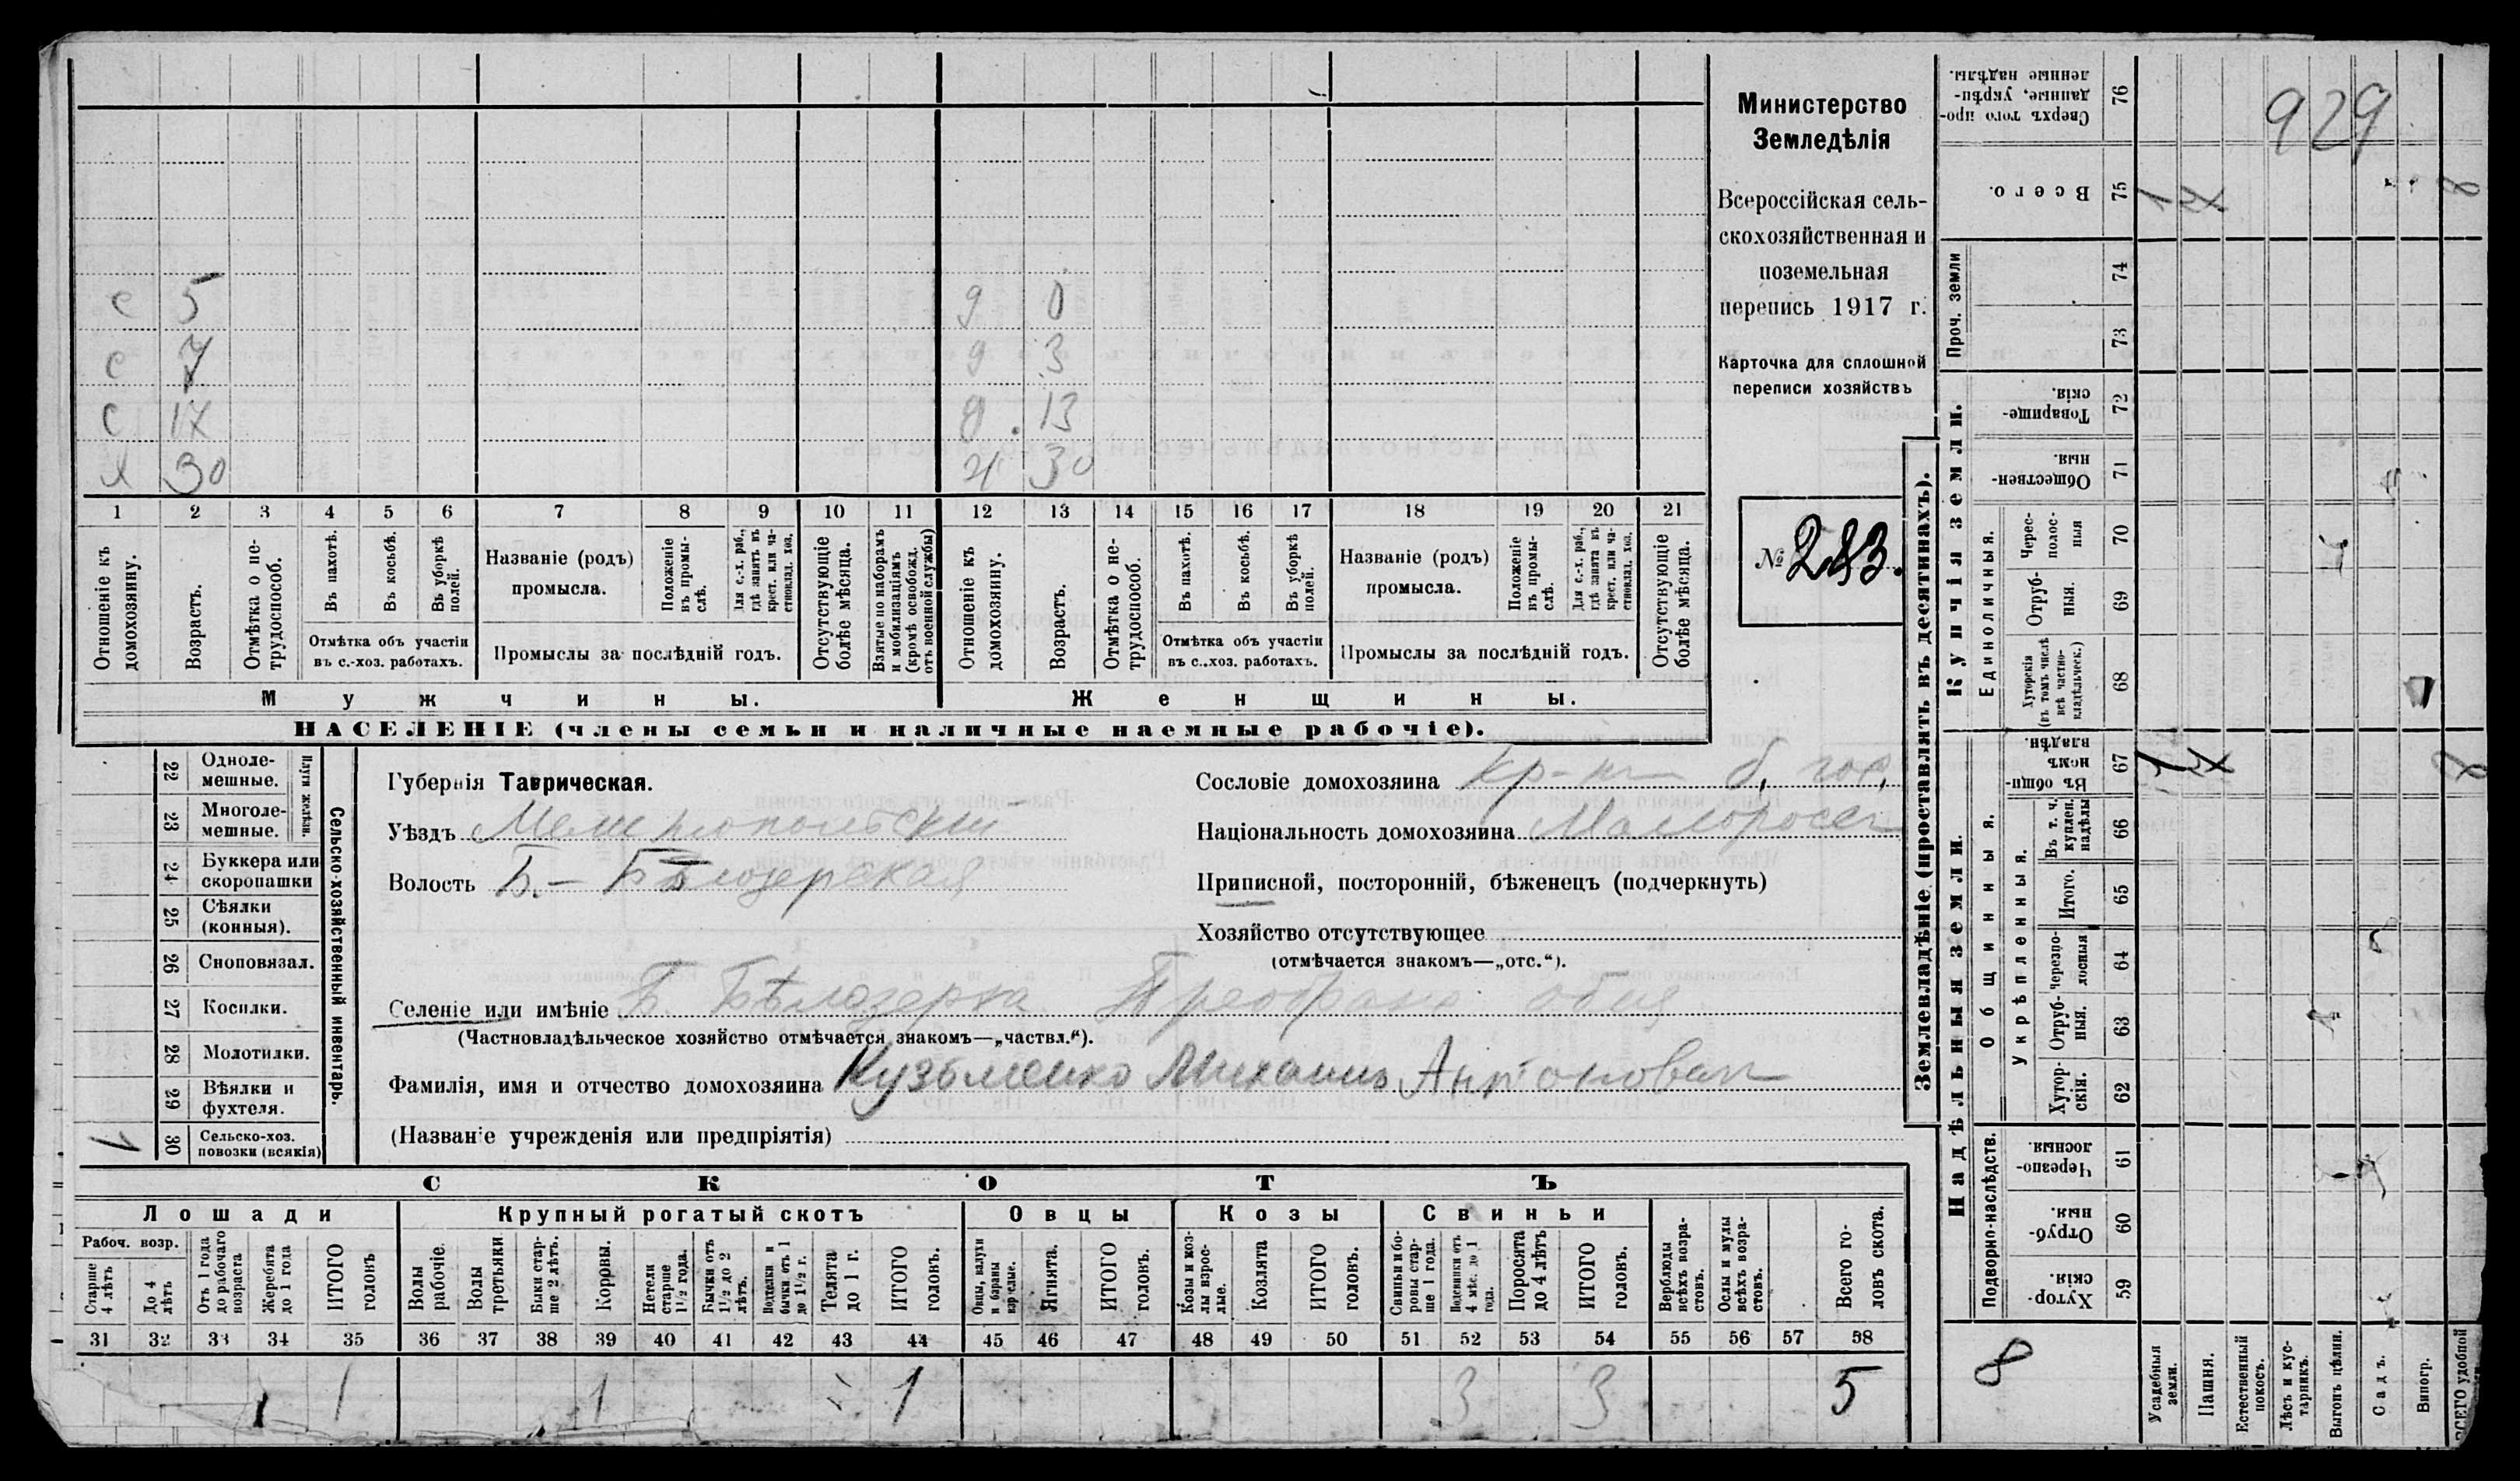 Министерство
Земледѣлія
Всероссійская сель-
скохозяйственная и
поземельная
перепись 1917 г.
Карточка для сплошной
переписи хозяйствъ
№ 283.
929
с 5
с 7
с 17
х 30
д 0
д 3
д 13
ж 30
1 2 3 4 5 6 7 8 9 10 11 12 13 14 15 16 17 18 19 20 21
Отношеніе къ домохозяину.
Возрастъ.
Отмѣтка о не-трудоспособ.
Въ пахотѣ.
Въ косьбѣ.
Въ уборкѣ полей.
Отмѣтка объ участіи
въ с.-хоз. работахъ.
Названіе (родъ)
промысла.
Положеніе въ промы-слѣ.
Для с.-х. раб., гдѣ занятъ въ крест. или ча-стновлад. хоз.
Промыслы за послѣдній годъ.
Отсутствующіе болѣе мѣсяца.
Взятые по наборамъ и мобилизаціямъ (кромѣ освобожд. отъ военной службы)
Отношеніе къ домохозяину.
Возрастъ.
Отмѣтка о не-трудоспособ.
Въ пахотѣ.
Въ косьбѣ.
Въ уборкѣ полей.
Отмѣтка объ участіи
въ с.-хоз. работахъ.
Названіе (родъ)
промысла.
Положеніе въ промы-слѣ.
Для с.-х. раб., гдѣ занятъ въ крест. или ча-стновлад. хоз.
Промыслы за послѣдній годъ.
Отсутствующіе болѣе мѣсяца.
Мужчины.
Женщины.
НАСЕЛЕНІЕ (члены семьи и наличные наемные рабочіе).
22 Одноле-мешные.
23 Многоле-мешные.
Плуги желѣзн.
24 Буккера или скоропашки
25 Сѣялки (конныя).
26 Сноповязал.
27 Косилки.
28 Молотилки.
29 Вѣялки и фухтеля.
30 Сельско-хоз. повозки (всякія)
1
Сельско-хозяйственный инвентарь.
Губернія Таврическая.
Уѣздъ Мелитопольскій
Волость Б.-Бѣлозерская
Сословіе домохозяина кр-нъ б. гос.
Національность домохозяина Малоросс
Приписной, посторонній, бѣженецъ (подчеркнуть)
Хозяйство отсутствующее
(отмѣчается знакомъ—„отс.“).
Селеніе или имѣніе Б. Бѣлозерка Преображ. общ.
(Частновладѣльческое хозяйство отмѣчается знакомъ—„частвл.“).
Фамилія, имя и отчество домохозяина Кузьменко Михаилъ Антонович
(Названіе учрежденія или предпріятія)
СКОТЪ
Лошади
Крупный рогатый скотъ
Овцы
Козы
Свиньи
Рабоч. возр.
Старше 4 лѣтъ
До 4 лѣтъ
Отъ 1 года до рабочаго возраста
Жеребята до 1 года
ИТОГО головъ
Волы рабочіе.
Волы третьяки.
Быки стар-ше 2 лѣтъ.
Коровы.
Нетели старше 1½ года.
Бычки отъ 1½ до 2 лѣтъ.
Подтелки и бычки отъ 1 до 1½ г.
Телята до 1 г.
ИТОГО головъ.
Овцы, валухи и бараны взрослые.
Ягнята.
ИТОГО головъ.
Козы и коз-лы взрос-лые.
Козлята
ИТОГО головъ.
Свиньи и бо-ровы стар-ше 1 года.
Подсвинки отъ 4 мѣс. до 1 года.
Поросята до 4 лѣтъ
ИТОГО головъ.
Верблюды всѣхъ возра-стовъ.
Ослы и мулы всѣхъ возра-стовъ.
Всего го-ловъ скота.
31 32 33 34 35 36 37 38 39 40 41 42 43 44 45 46 47 48 49 50 51 52 53 54 55 56 57 58
1 1 1 1 3 3 5
Землевладѣніе (проставлять въ десятинахъ).
Купчія земли.
Надѣльныя земли.
Сверхъ того про-данные, укрѣп-ленные надѣлы. 76
Всего. 75
Проч. земли 74
73
Товарище-скія. 72
Обществен-ныя. 71
Единоличныя.
Черес-полос-ныя 70
Отруб-ныя. 69
Хуторскія (въ томъ числѣ всѣ частно-владѣльческ.) 68
Въ общи-номъ владѣн. 67
Общинныя.
Укрѣпленныя.
Въ т. ч. куплен. надѣлы 66
Итого. 65
Черезпо-лосныя 64
Отруб-ныя. 63
Хутор-скія. 62
Подворно-наслѣдств.
Черезпо-лосныя 61
Отруб-ныя. 60
Хутор-скія. 59
8
Усадебныя земли.
Пашня.
Естественный покосъ.
Лѣсъ и кус-тарникъ.
Выгонъ цѣлин.
Садъ.
Виногр.
ВСЕГО удобной